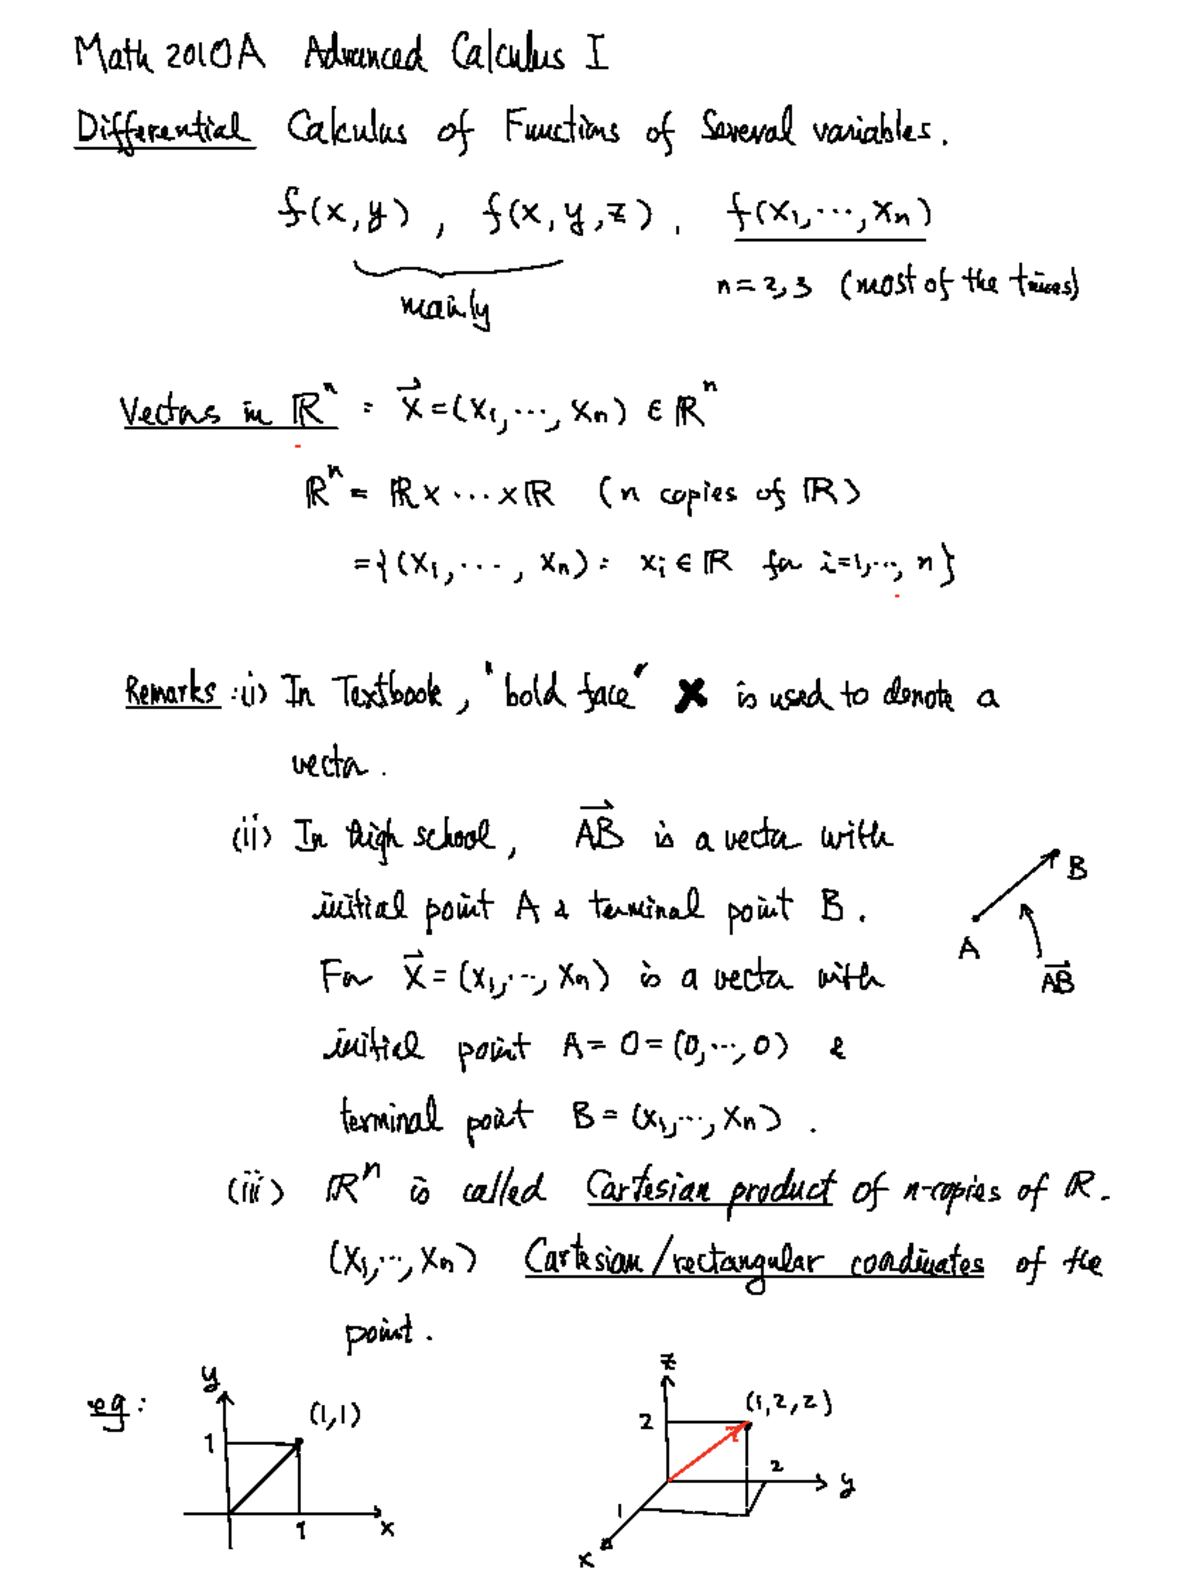 Math 2010A Advanced Calculus I
Differential Calculus of Functions of Several variables.
f(x,y), f(x,y,z), f(x₁,⋯,xₙ)
mainly
n=2,3 (most of the times)
Vectors in ℝⁿ : x⃗=(x₁,⋯,xₙ) ∈ ℝⁿ
ℝⁿ = ℝ×⋯×ℝ (n copies of ℝ)
={(x₁,⋯,xₙ): xᵢ∈ℝ for i=1,⋯,n}
Remarks :(i) In Textbook, "bold face" x is used to denote a
vector.
(ii) In high school, A⃗B⃗ is a vector with
initial point A & terminal point B.
For x⃗=(x₁,⋯,xₙ) is a vector with
initial point A=0=(0,⋯,0) &
terminal point B=(x₁,⋯,xₙ).
B
A
A⃗B⃗
(iii) ℝⁿ is called Cartesian product of n-copies of ℝ.
(x₁,⋯,xₙ) Cartesian/rectangular coordinates of the
point.
eg:
y
(1,1)
1
1
x
z
(1,2,2)
2
2
y
1
x